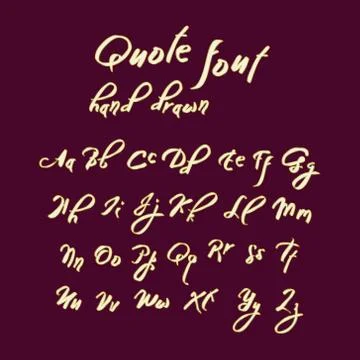 Quote font
hand drawn
Aa Bb Cc Dd Ee Ff Gg
Hh Ii Jj Kk Ll Mm
Nn Oo Pp Qq Rr Ss Tt
Uu Vv Ww Xx Yy Zz